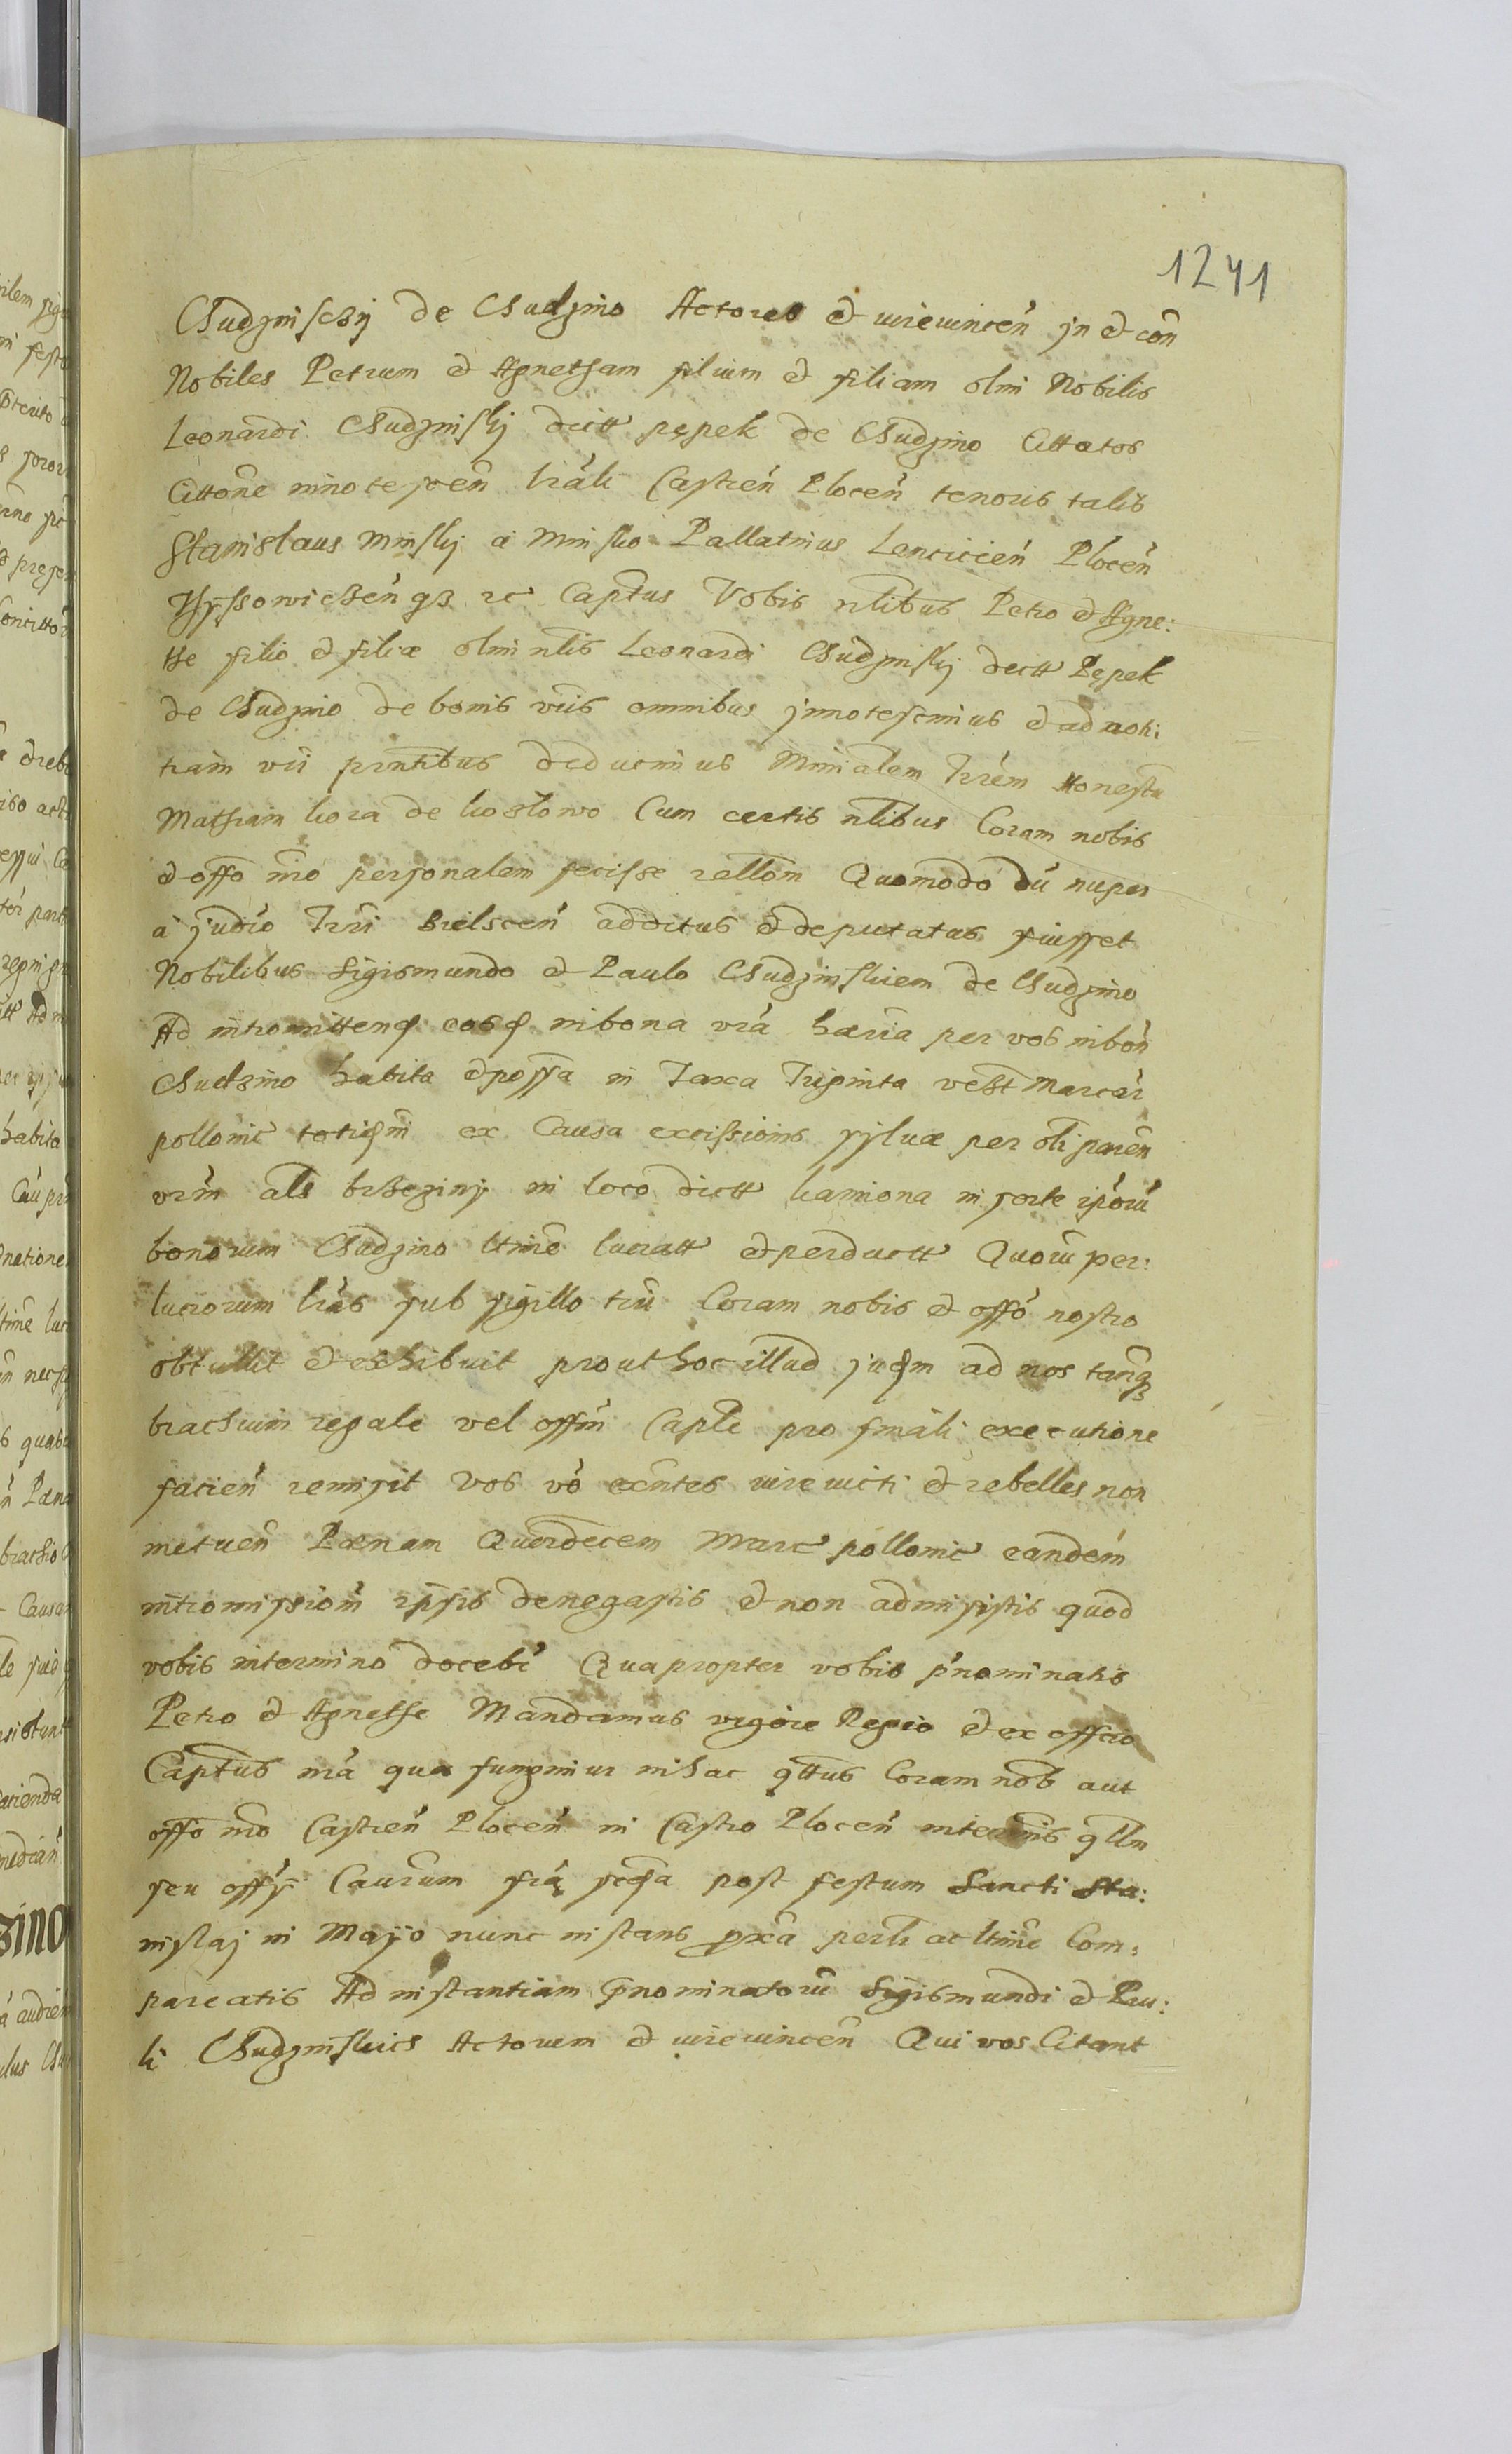 1241
Chudzinsczij de Chudzino Actores et iurevincen̄ in et con̄
Nobiles Petrum et Agnetham filium et filiam olm̄ Nobilis
Leonardi Chudzinskij dictt pępek de Chudzino Cittatos
Citton̄e innotescen̄ lrāli Castren̄ Plocen̄ tenoris talis
Stanislaus Minskij a Minsko Pallatinus Lancicien̄ Plocen̄
qz et Captus Vobis nl̄ibus Petro et Agne:
the filio et filiæ olm̄ nl̄is Leonardi Chudzinskij dictt Pępek
de Chudzino de bonis vr̄is omnibus innotescimus et ad noti
tiam vr̄i prn̄tibus deducimus Minialem Trr̄em Honestū
Mathiam kora de koslowo Cum certis nl̄ibus Coram nobis
et offō nr̄o personalem fecisse rell̄om Quomodo dū nuper
a judīo Trr̄i Bielscen̄ additus et deputatus fuisset
Nobilibus Sigismundo et Paulo Chudzinskiem de Chudzino
Ad intromitten̄ eos in bona vrā hæria per vos in bon̄
Chudzino habita et possa in Taxa Triginta Marcar̄
pollonic ex Causa excissionis sylvæ per olī paren̄
vrm̄ als brzeziny in loco dictt kamiona in sorte ip̄orū
bonorum Chudzino ltim̄e lucratt et perductt Quorū per:
lucrorum lrās sub sigillo trū Coram nobis et offō nostro
obtullit et exhibuit prout hoc illud ad nos tanqz
brachium regale vel offm̄ Captle pro finali executione
facien̄ remisit vos vō exn̄tes iurevicti et rebelles non
metuen̄ Pænam Quordecem Marc pollonic eandem
intromission̄ ipsis denegastis et non admisistis quod
vobis in termino docebī Quapropter vobis p̄nominatis
Petro et Agnethe Mandamus vigore Regio et ex officio
Captus nrā quo fungimur in hac Coram nob̄ aut
offō nr̄o Castren̄ Plocen̄ in Castro Plocen̄ in terminis qllm
seu offy Caurum frā scda post festum Sancti Sta:
nislaj in Maijo nunc instans prx̄a perlr̄ ac ltim̄e Com:
pareatis Ad instantiam p̄nominatorū Sigismundi et Pau:
li Chudzinskies Actorum et iurevincen̄ Qui vos Citant